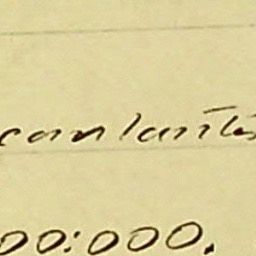 cantantes
00:000.